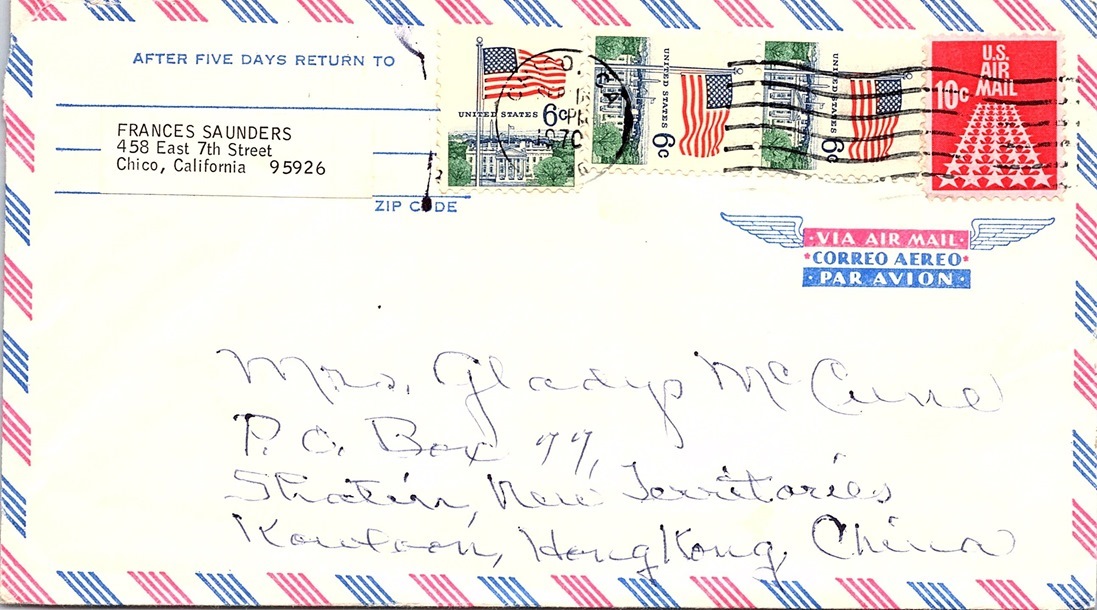 AFTER FIVE DAYS RETURN TO
FRANCES SAUNDERS
458 East 7th Street
Chico, California 95926
ZIP CODE
UNITED STATES 6c
UNITED STATES 6c
UNITED STATES 6c
U.S.
AIR
MAIL
10c
PM
1970
VIA AIR MAIL
CORREO AEREO
PAR AVION
Mrs. Gladys McCune
P.O. Box 77,
Shatin, New Territories
Kowloon, Hong Kong, China